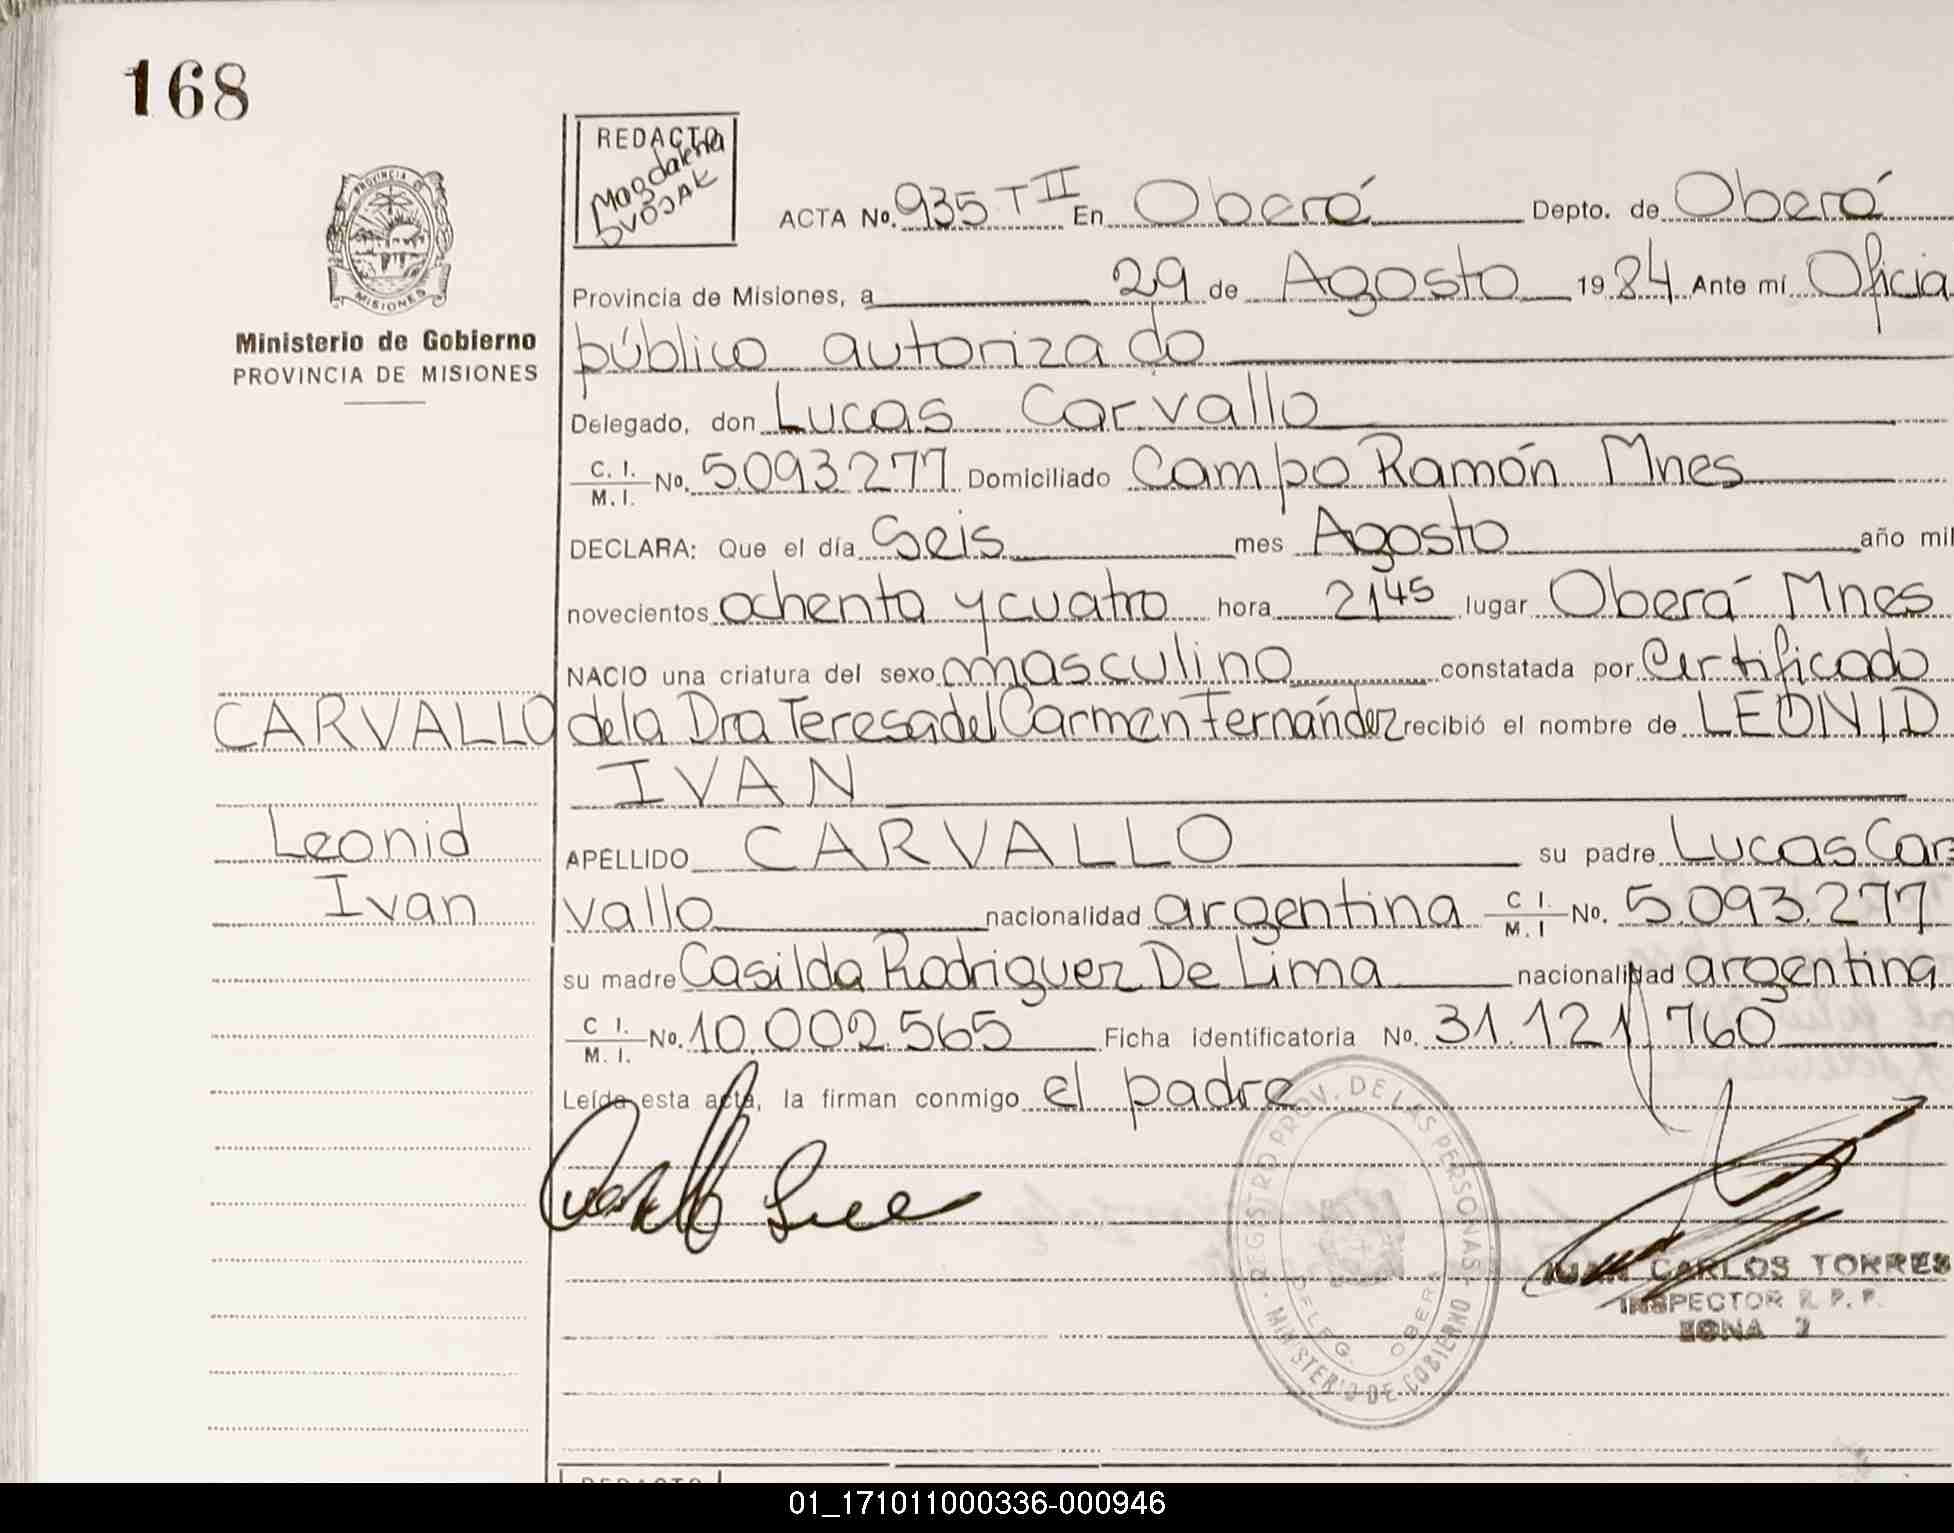 168
REDACTO
Magdalena
DVOJAK
PROVINCIA DE
MISIONES
Ministerio de Gobierno
PROVINCIA DE MISIONES
ACTA No. 935 T II En Oberá Depto. de Oberá
Provincia de Misiones, a 29 de Agosto 1984 Ante mí Oficia
público autorizado
Delegado, don Lucas Carvallo
C. I. / M. I. No. 5.093.277 Domiciliado Campo Ramón Mnes
DECLARA: Que el día Seis mes Agosto año mil
novecientos ochenta y cuatro hora 21 45 lugar Oberá Mnes
NACIO una criatura del sexo masculino constatada por Certificado
CARVALLO
de la Dra Teresa del Carmen Fernández recibió el nombre de LEONID
IVAN
Leonid
Ivan
APELLIDO CARVALLO su padre Lucas Car
vallo nacionalidad argentina C I. / M. I No. 5.093.277
su madre Casilda Rodriguez De Lima nacionalidad argentina
C I. / M. I. No. 10.002.565 Ficha identificatoria No. 31.121.760
Leída esta acta, la firman conmigo el padre
REGISTRO PROV. DE LAS PERSONAS
MINISTERIO DE GOBIERNO
DELEG. OBERA
JUAN CARLOS TORRES
INSPECTOR R. P. P.
ZONA 2
REDACTO
01_171011000336-000946